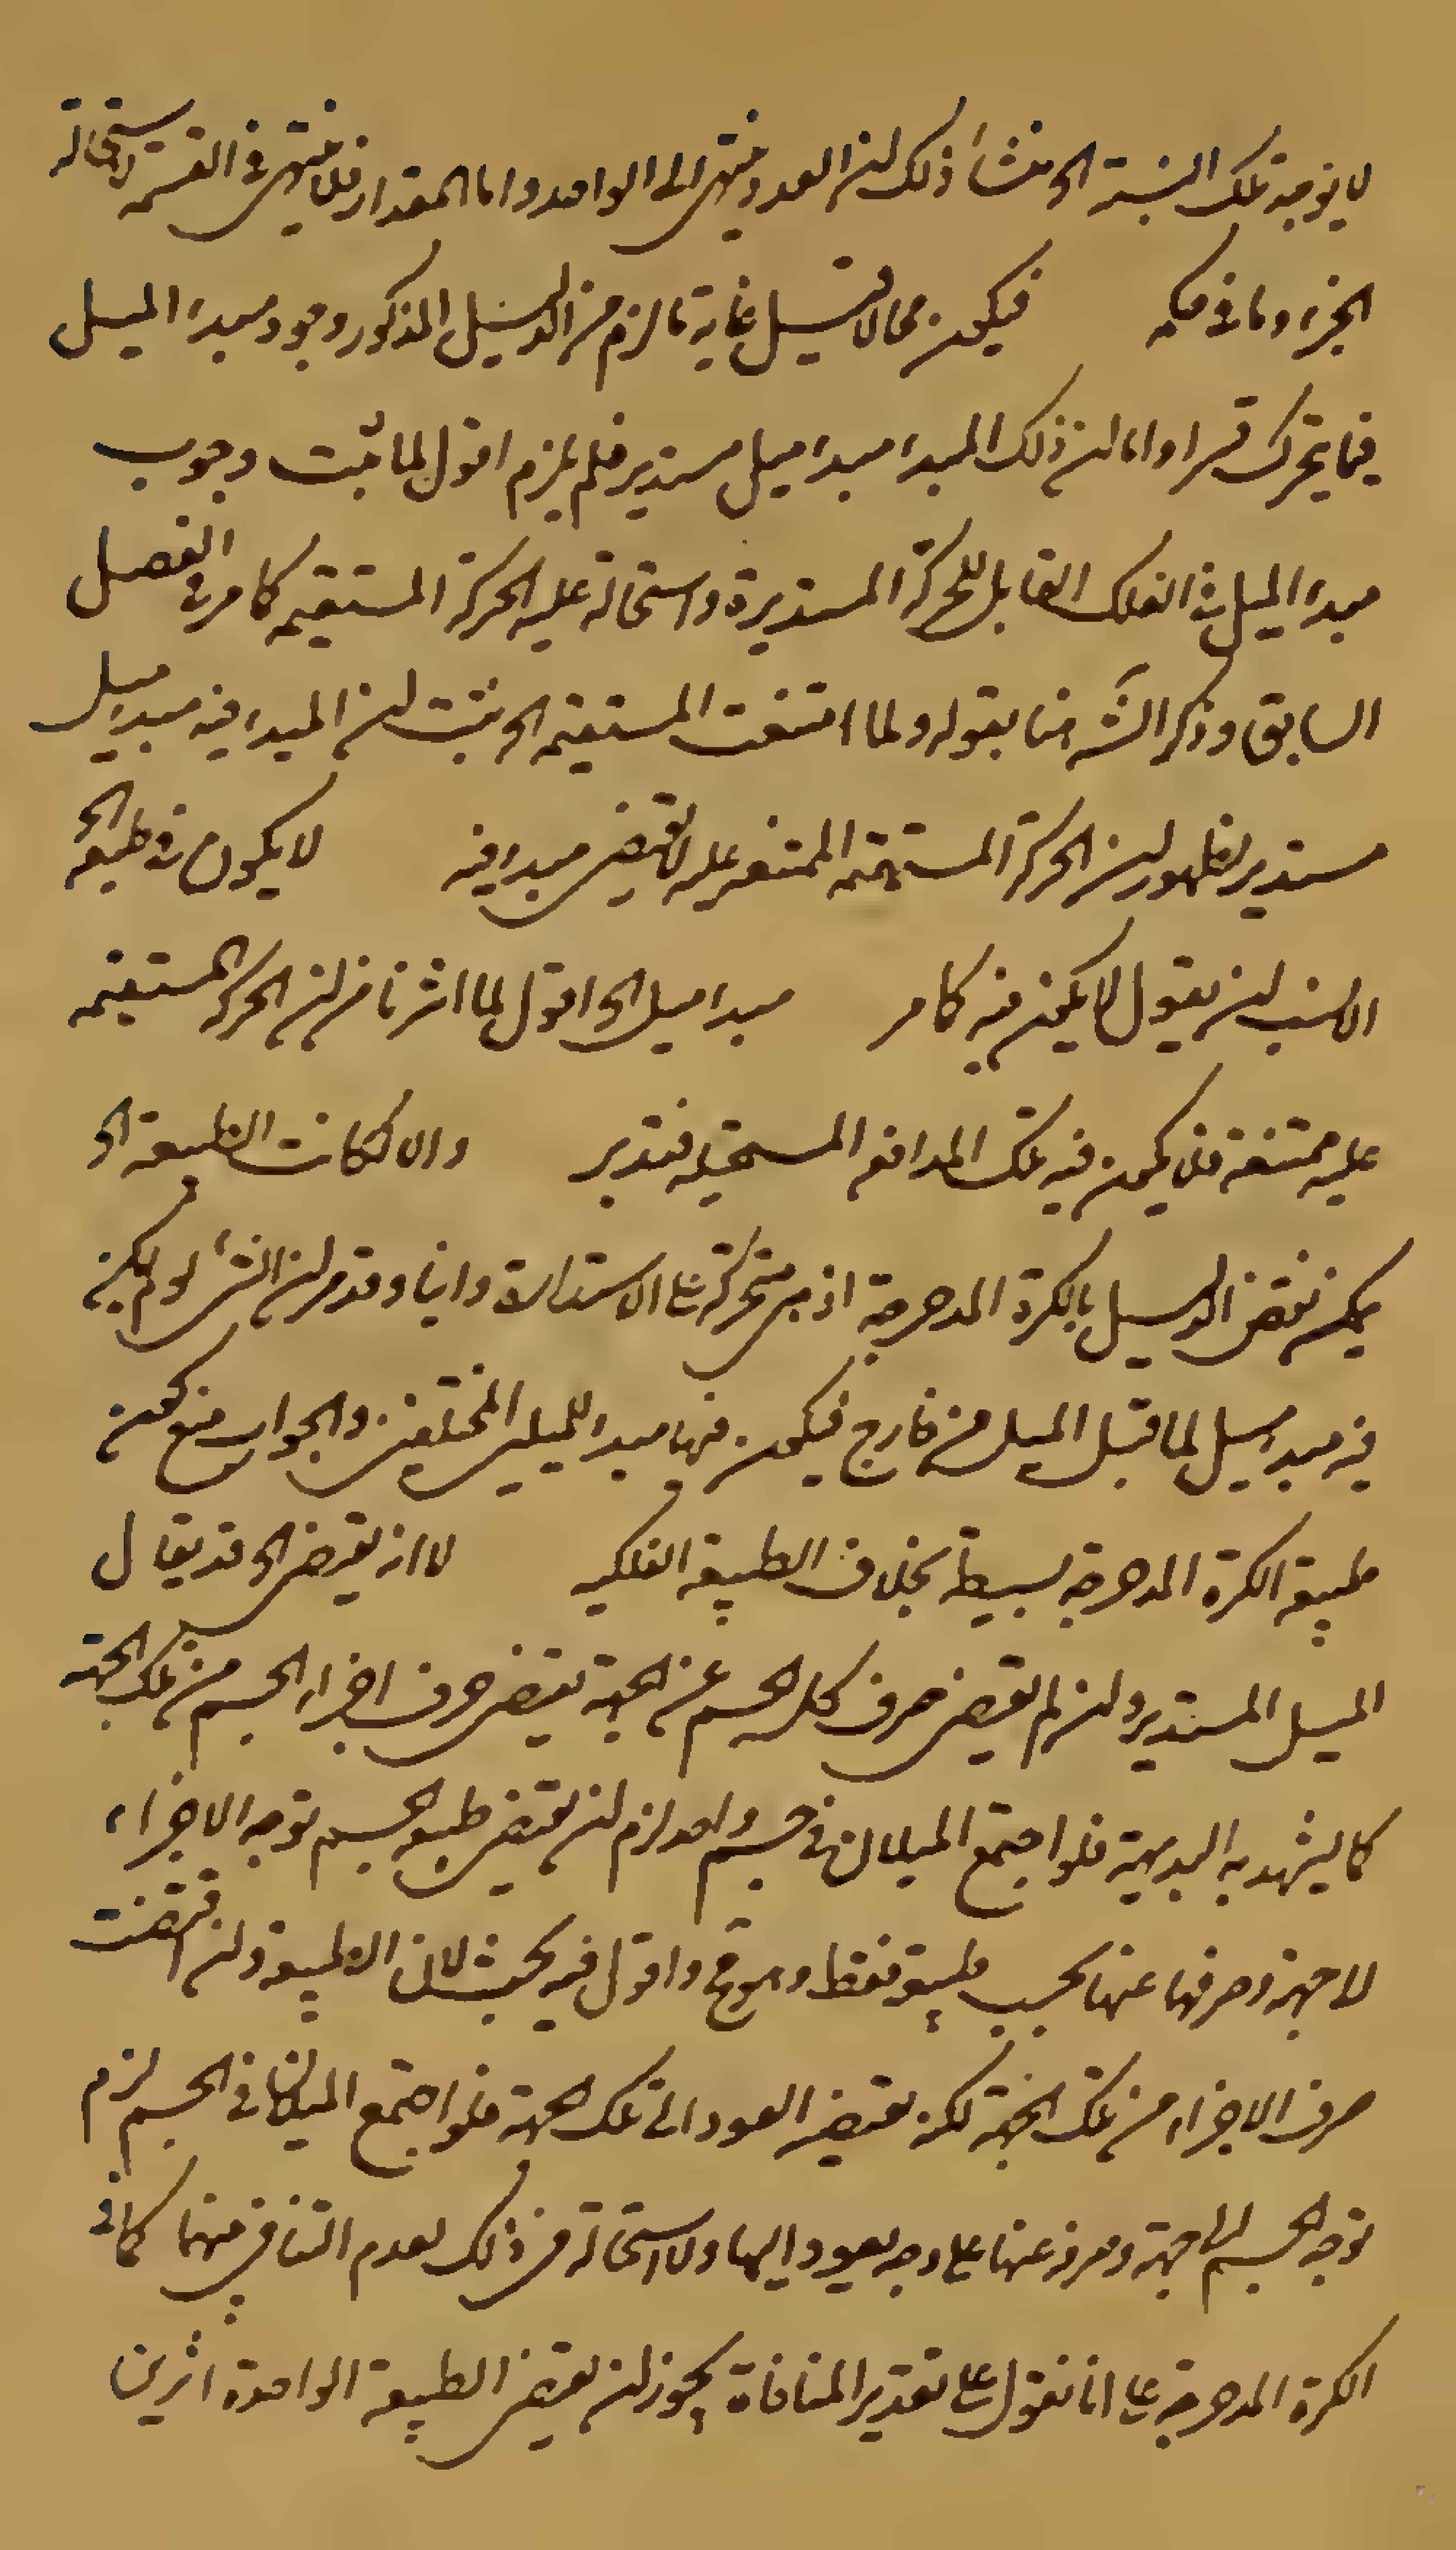 لا يوجد تلك النسبة الخ منشأ ذلك لان العدد ينتهي الى الواحد واما المقدار فلا ينتهي في القسمة لاستحالة
الجزء وما في حكمه فيكون محالا قيل غاية ما لزم من الدليل المذكور وجود مبدء الميل
فيما يتحرك قسرا واما ان ذلك المبدء مبدء ميل مستدير فلم يلزم اقول لما ثبت وجوب
مبدء الميل في الفلك القابل للحركة المستديرة واستحالة عليه الحركة المستقيمة كما مر في الفصل
السابق وذكر الشه هنا بقوله ولما امتنعت المستقيمة الخ ثبت ان المبدء فيه مبدء ميل
مستدير لظهور ان الحركة المستقيمة الممتنعة عليه لا يقتضي مبدء فيه لا يكون في طبيعة الخ
الانسب ان يقول لا يمكن فيه كما مر مبدء ميل الخ اقول لما اشرنا من ان الحركة المستقيمة
عليه ممتنعة فلا يكون فيه تلك المدافعة المستحيلة فتدبر والا لكانت الطبيعة الخ
يمكن نقض الدليل بالكرة المدحرجة اذ هي متحركة على الاستدارة واينا وقد مر ان الشيء لو لم يكن
فيه مبدء ميل لما قبل الميل من خارج فيكون فيها مبدء للميلين المختلفين والجواب منع كون
طبيعة الكرة المدحرجة بسيطة بخلاف الطبيعة الفلكية لا انه يقتضي الخ قد يقال
الميل المستدير وان لم يقتض صرف كل الجسم عن الجهة يقتضي صرف اجزاء الجسم من تلك الجهة
كما يشهد به البديهة فلو اجتمع الميلان في جسم واحد لزم ان يقتضي طبيعة الجسم توجه الاجزاء
لا جهة وصرفها عنها بحسب طبيعة فقط وهو مح واقول فيه بحث لان الطبيعة وان اقتضت
صرف الاجزاء من تلك الجهة لكنه يقتضي العود الى تلك الجهة فلو اجتمع الميلان في الجسم لزم
توجه الجسم الى جهة وصرفه عنها على وجه يعود اليها ولا استحالة في ذلك لعدم التنافي بينهما كما في
الكرة المدحرجة على انا نقول على تقدير المنافاة يجوز ان يقتضي الطبيعة الواحدة اثرين